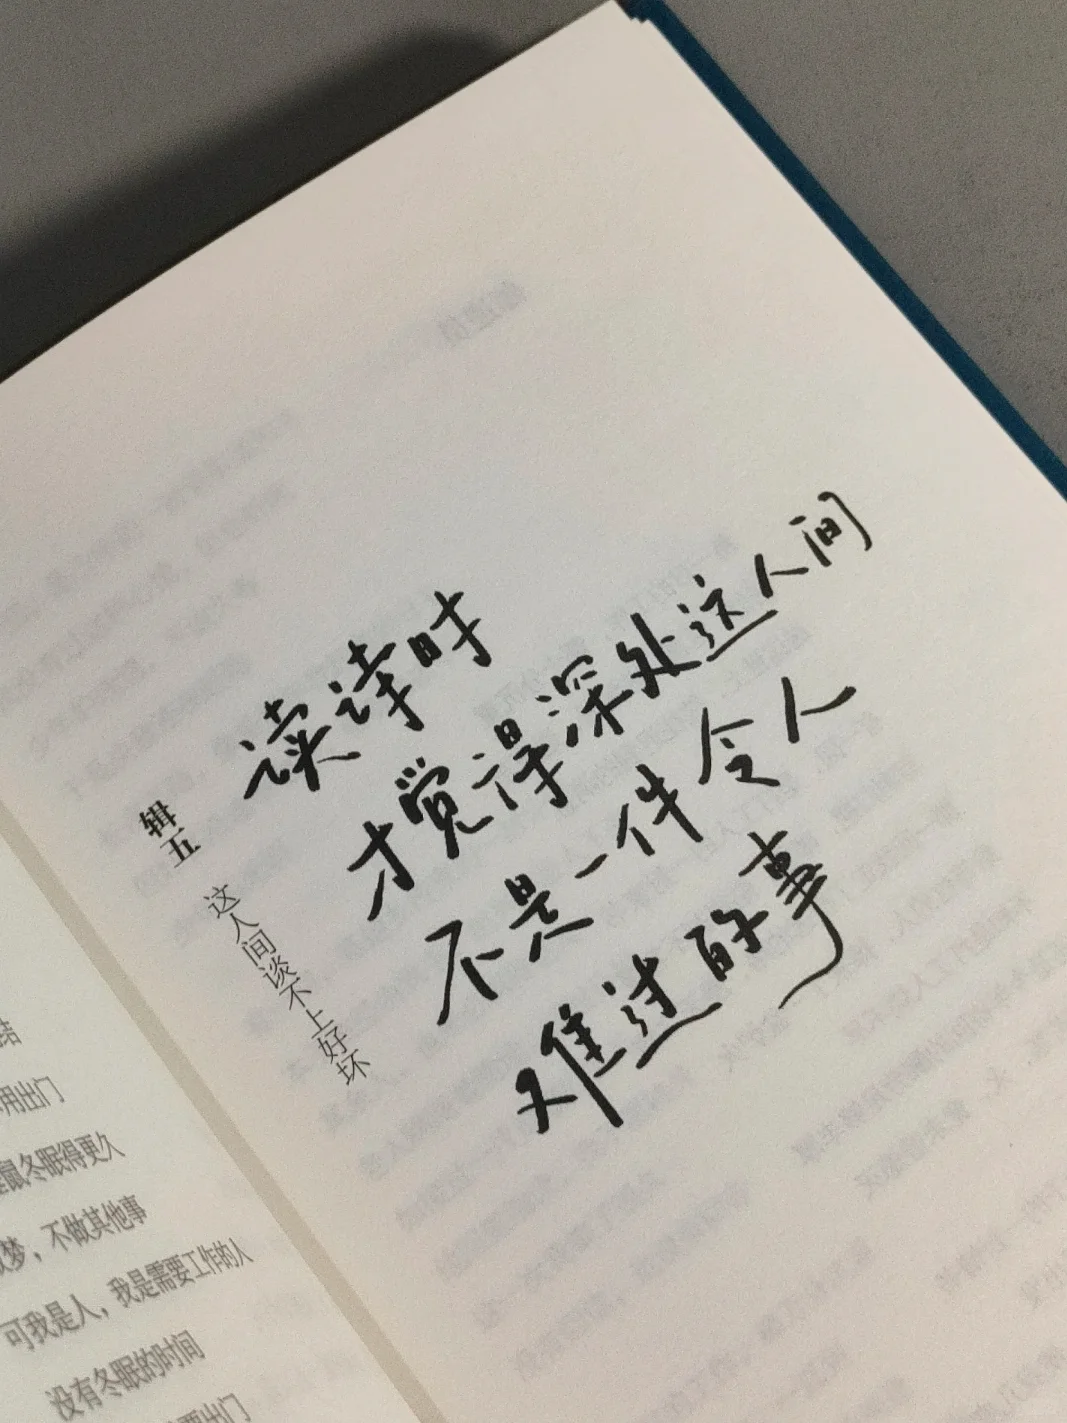 读诗时
才觉得深处这人间
不是一件令人
难过的事
辑五
这人间谈不上好坏
用出门
鼠冬眠得更久
梦，不做其他事
可我是人，我是需要工作的人
没有冬眠的时间
要出门